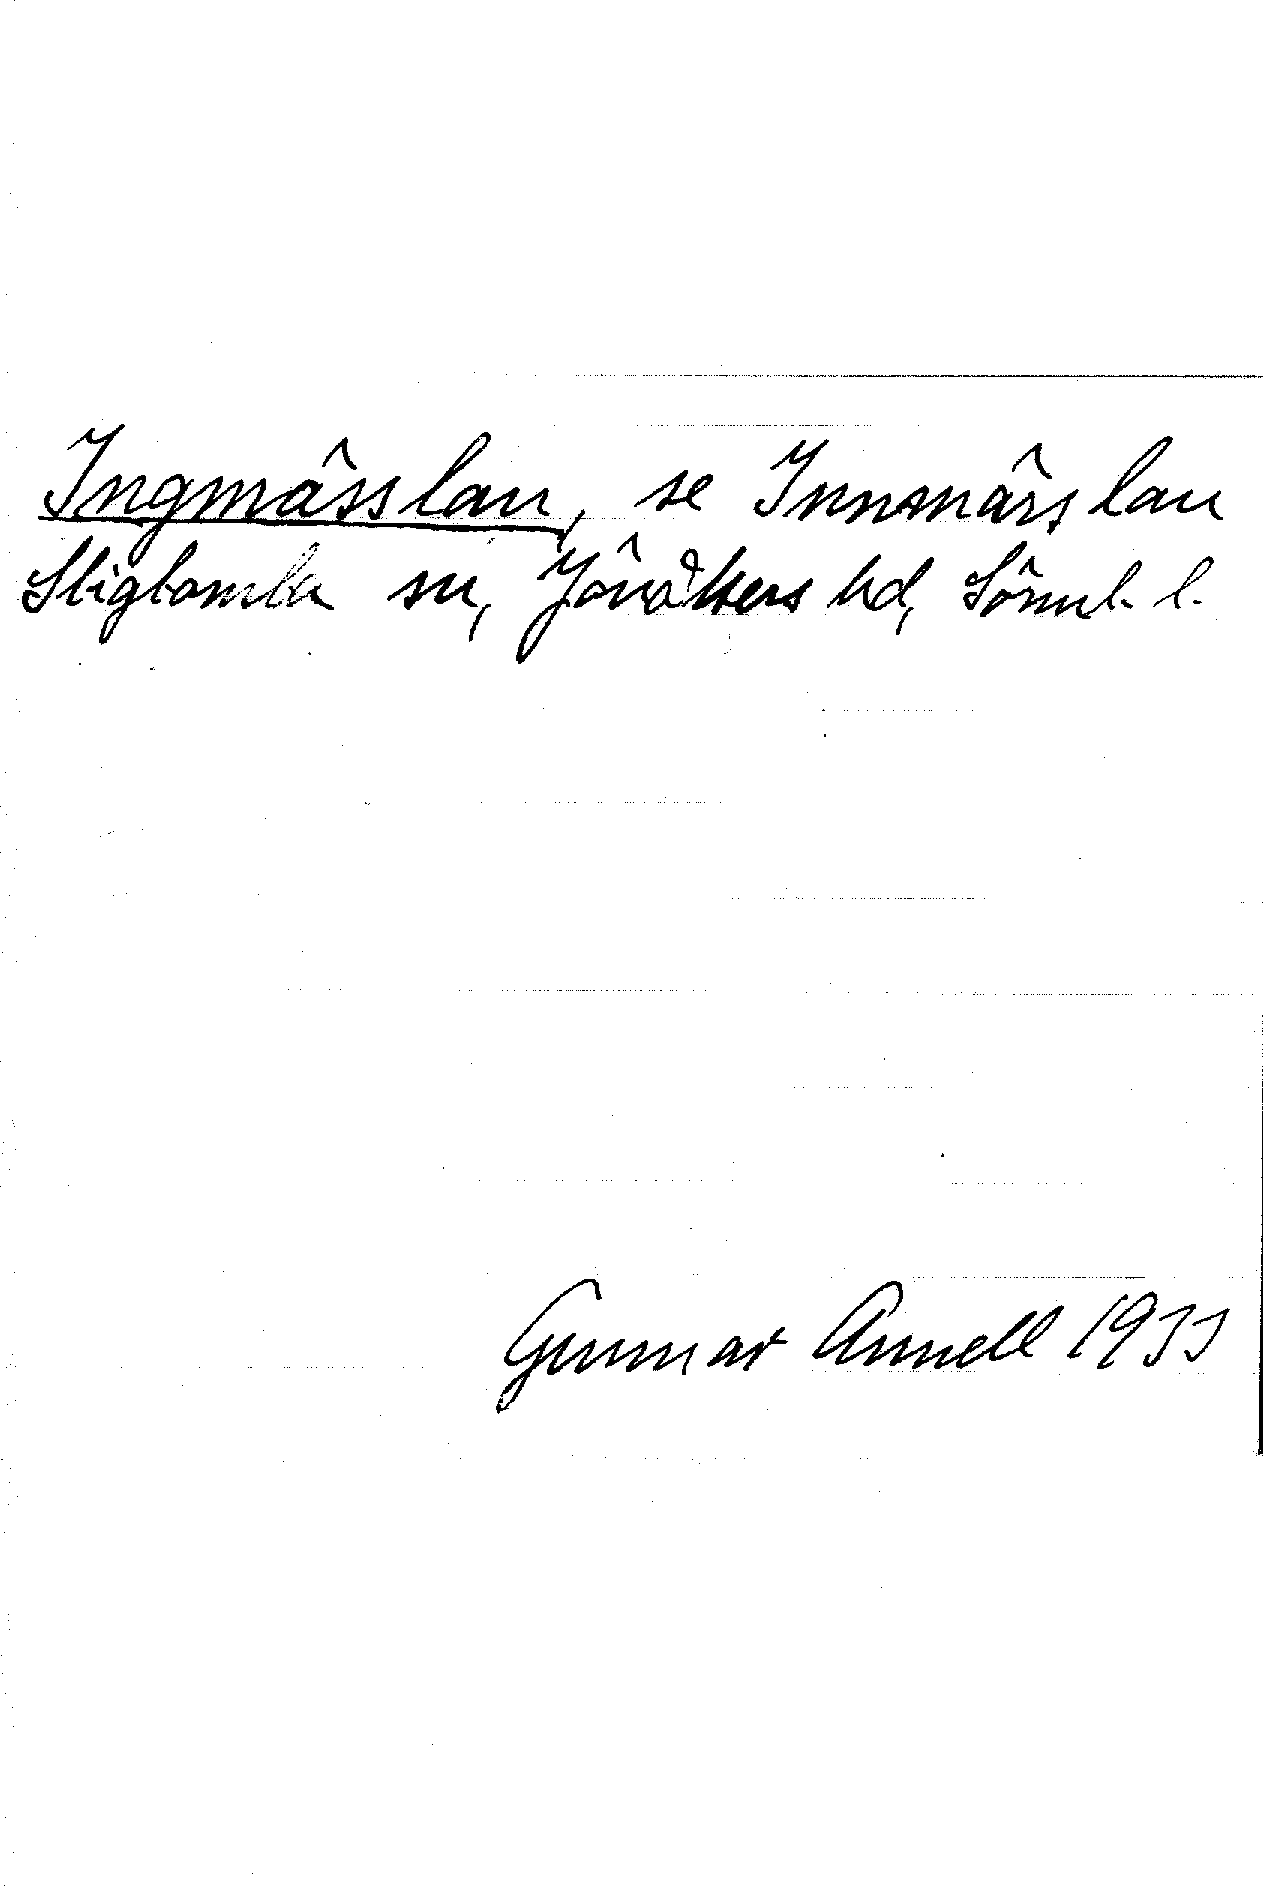 Ingmässlan, se Innmärslan
Stigtomta sn, Jönåkers hd, Sörml. l.
Gunnar Annell 1933